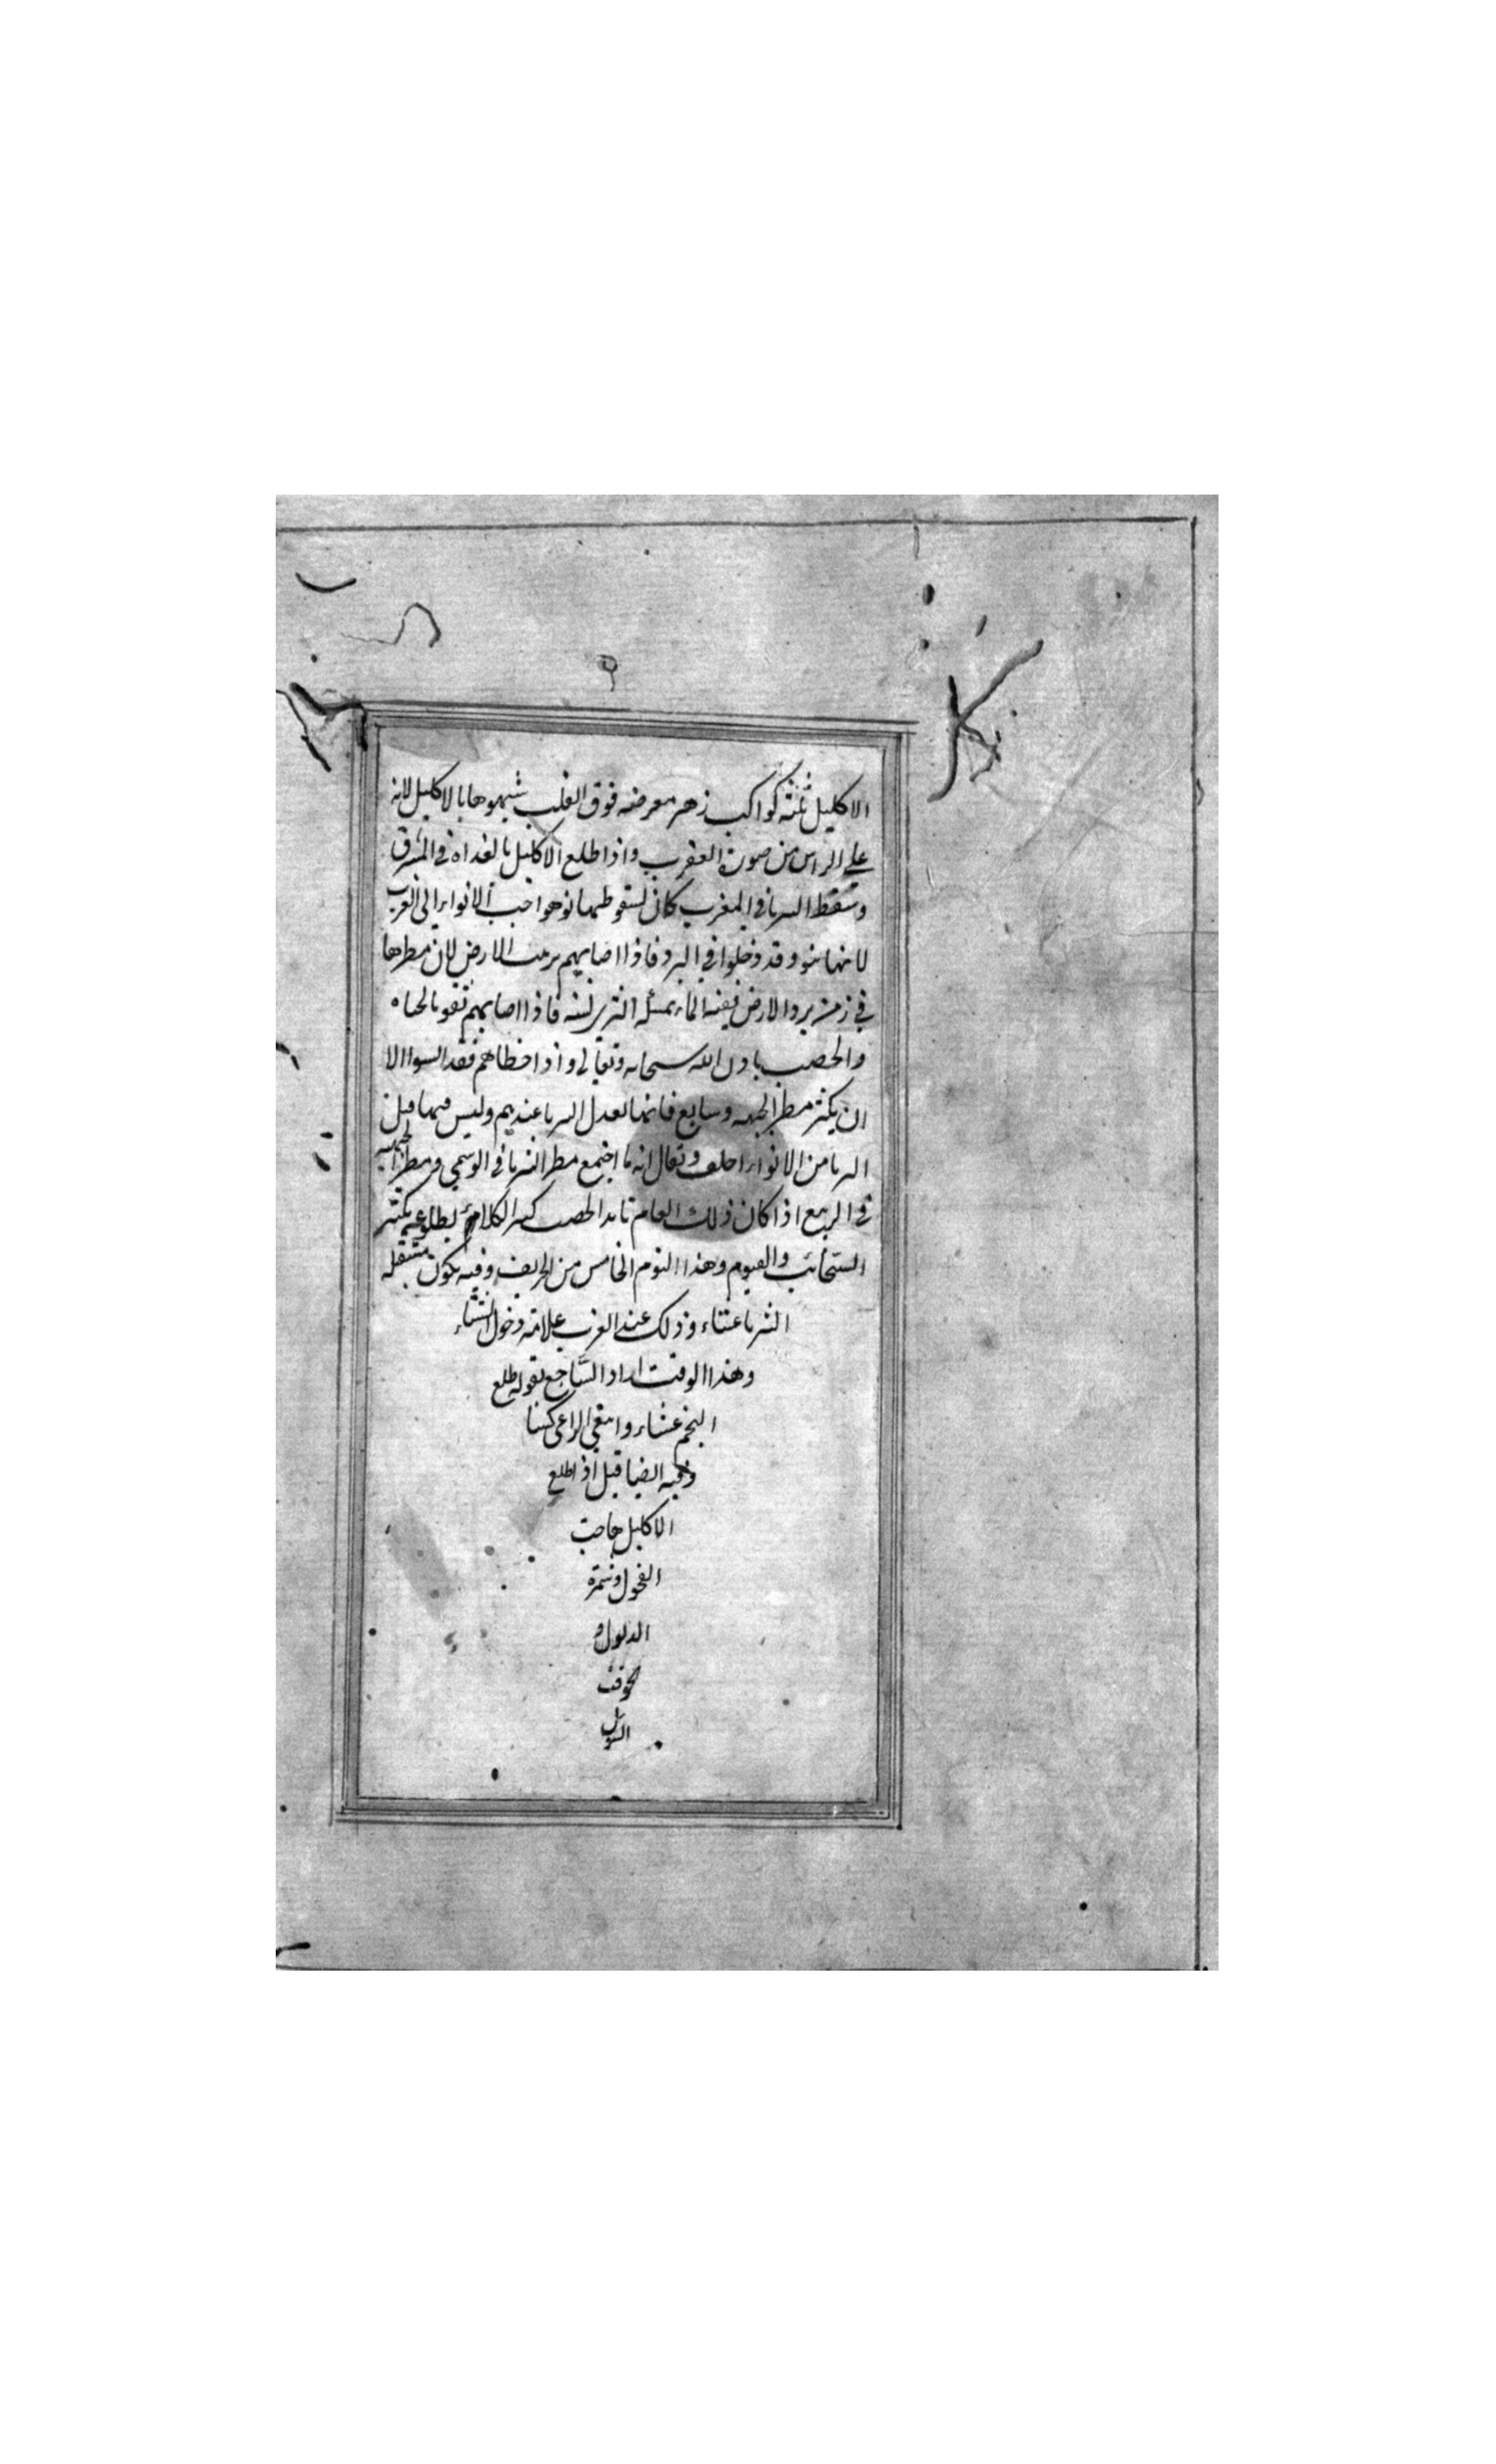 الاكليل ثلثة كواكب زهر معرضه فوق القلب شبهوها بالاكليل لانه
على الراس من صورة العقرب واذا طلع الاكليل بالغداه في المشرق
وسقط الثريا في المغرب كان لسقوطها نوء هو احب الانواء الى العرب
لانها تنوء وقد دخلوا في البرد فاذا اصابهم الارض لان مطرها
في زمن برد الارض الماء الثرى لسنه فاذا اصابهم بالحياه
والخصب باذن الله سبحانه وتعالى واذا اخطاهم فقد الا
ان يكثر مطر الجبهه فانها تعدل الثريا عندهم وليس فيها قبل
الثريا من الانواء احلف ويقال انه ما اجتمع مطر الثريا في الوسمي ومطر الجبهه
في الربيع الا كان ذلك العام الخصب كثير الكلاء بطلوعه يكثر
السحائب والغيوم وهذا النوء الخامس من الخريف وفيه يكون
الثريا عشاء وذلك عند العرب علامة دخول الشتاء
وهذا الوقت اراد الساجع بقوله طلع
النجم عشاء وابتغى الراعي كساء
وفيه ايضا قيل اذا طلع
الاكليل هاجت
الفحول وشمرت
الذيول و
تخوفت
السيول